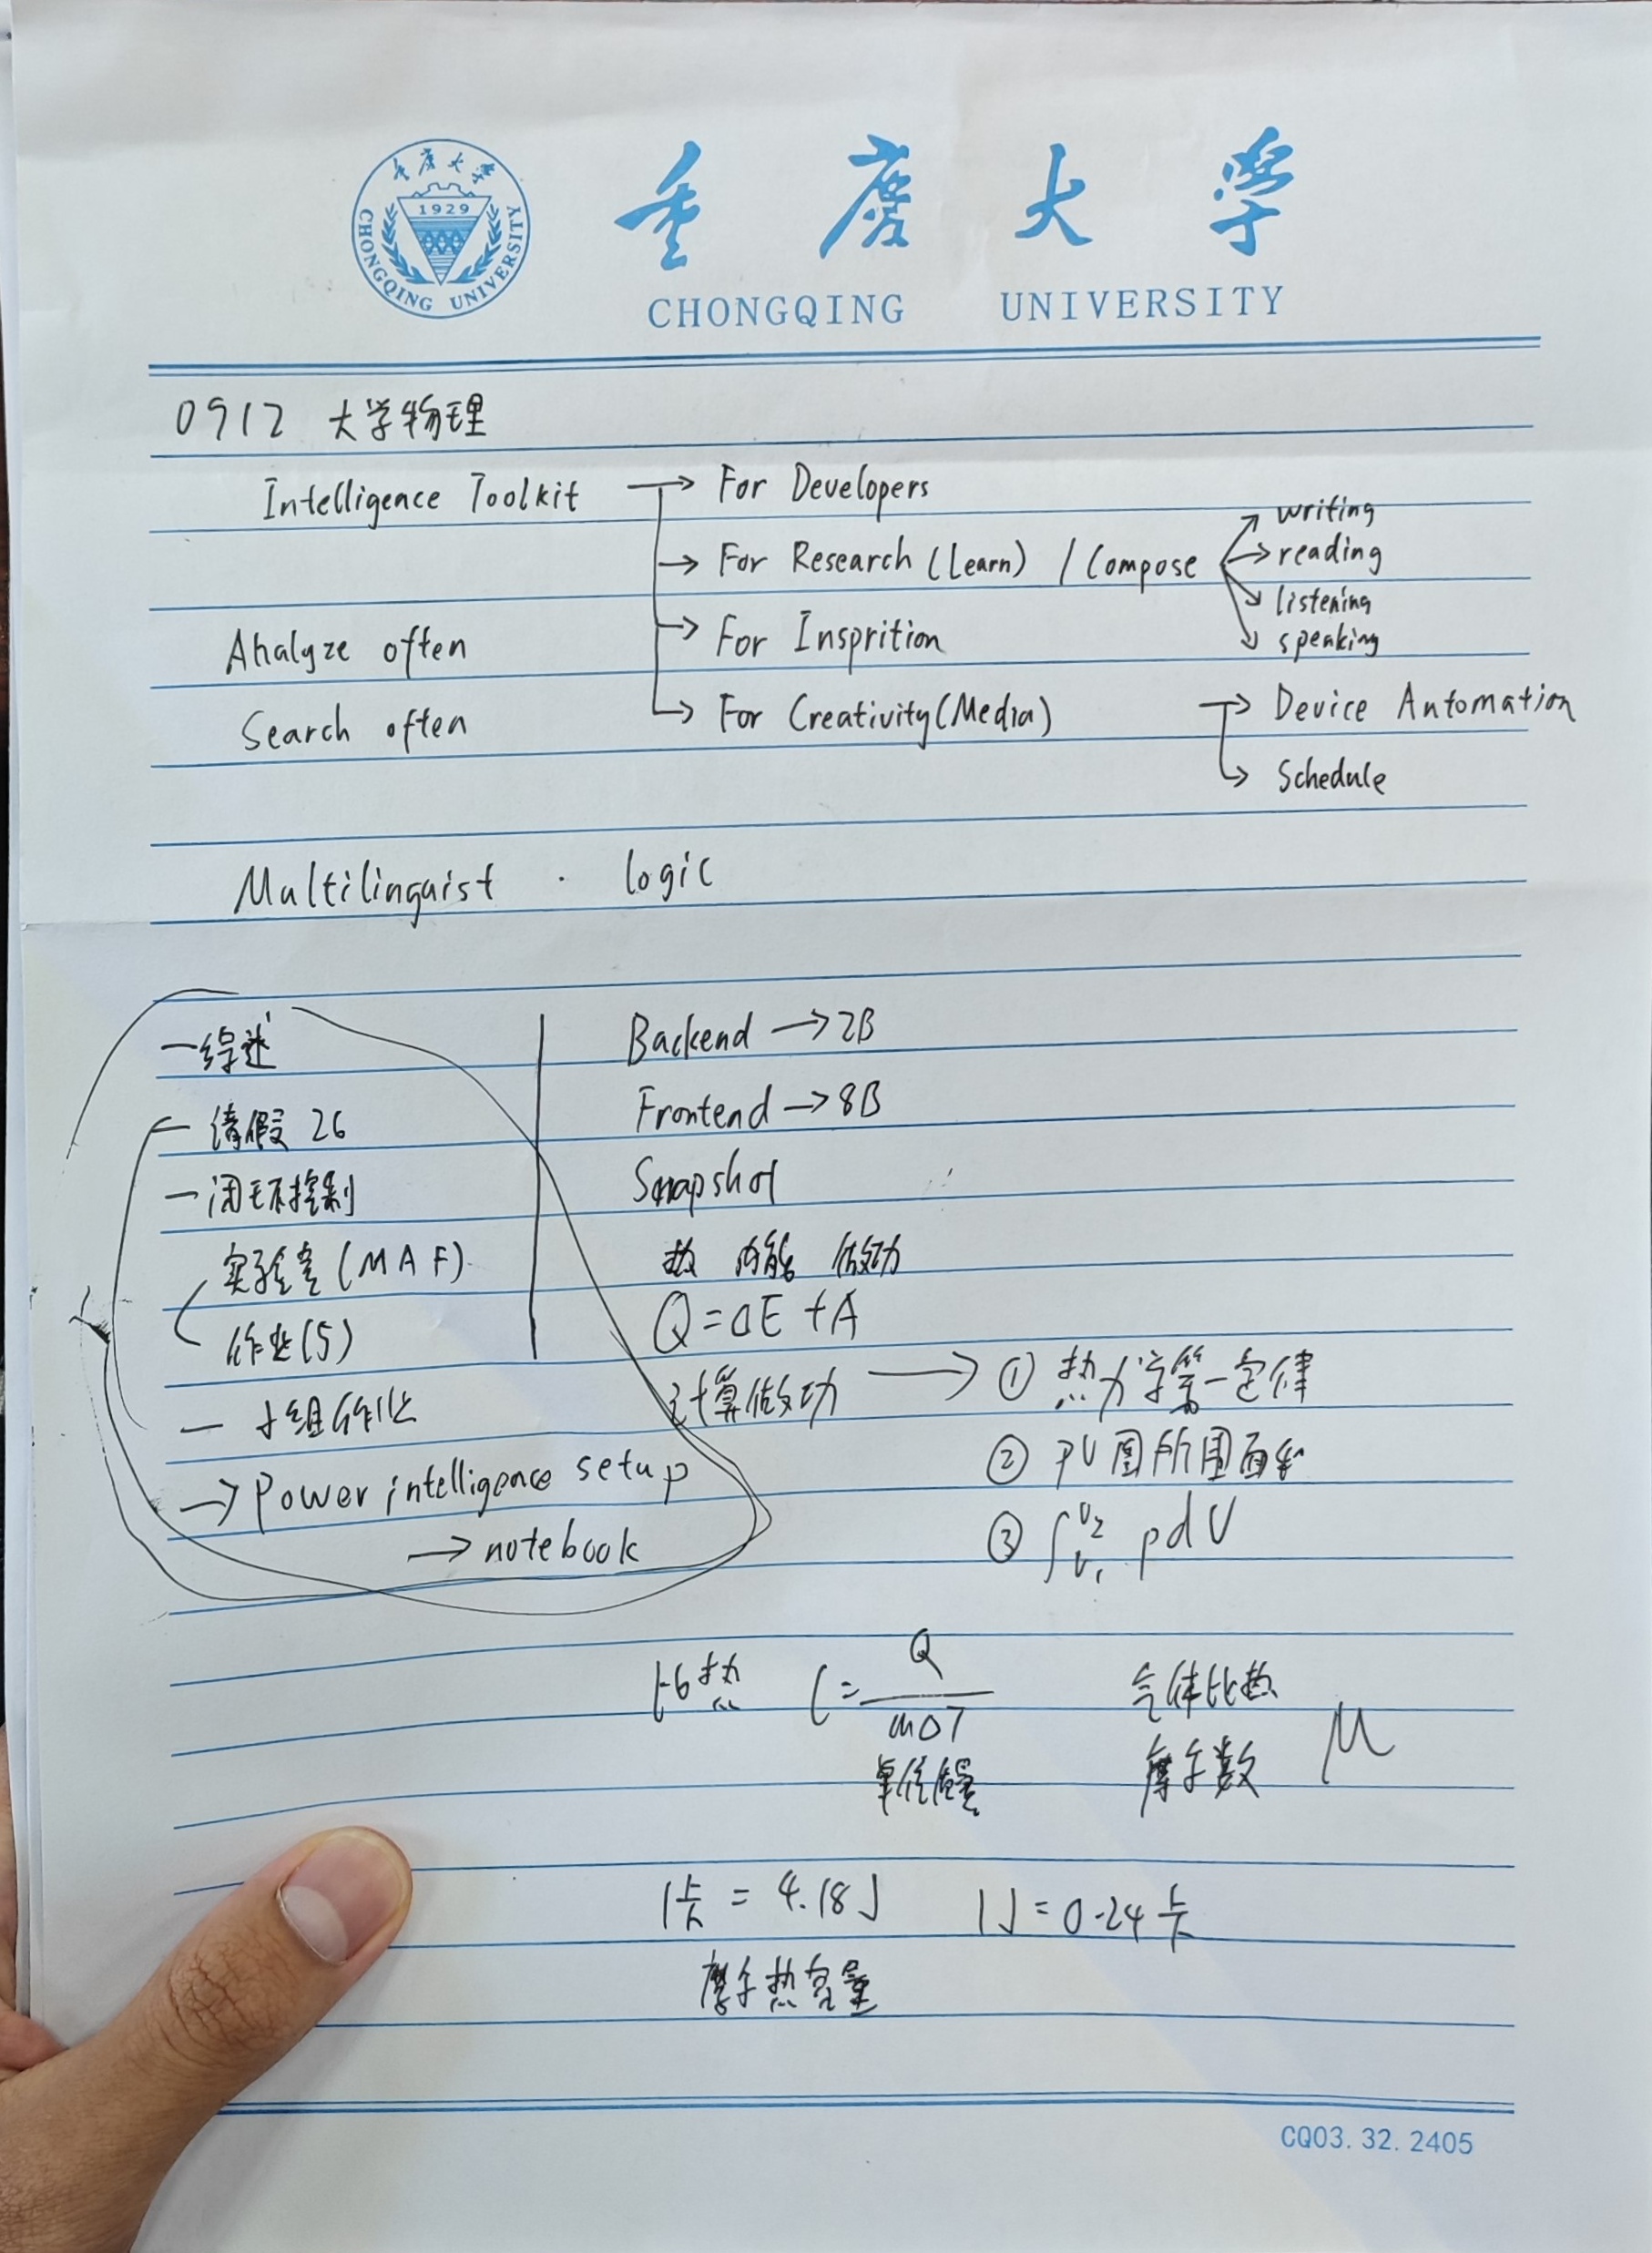 重庆大学
1929
CHONGQING UNIVERSITY
重庆大学
CHONGQING UNIVERSITY
0912 大学物理
Intelligence Toolkit → For Developers
→ For Research (Learn) / Compose
→ writing
→ reading
→ listening
→ speaking
Analyze often
→ For Insprition
Search often
→ For Creativity (Media)
→ Device Automation
→ Schedule
Multilinguist · logic
一 综述
一 请假 26
一 闭环控制
实验室 (MAF)
作业(5)
一 小组作业
→ Power intelligence setup
→ notebook
Backend → 2B
Frontend → 8B
Snapshot
热 内能 做功
Q = ΔE + A
计算做功 → ① 热力学第一定律
② PV图所围面积
③ ∫V₁V₂ pdV
比热 C = Q / mΔT
单位质量
气体比热
摩尔数 M
1卡 = 4.18J 1J = 0.24卡
摩尔热容量
CQ03.32.2405